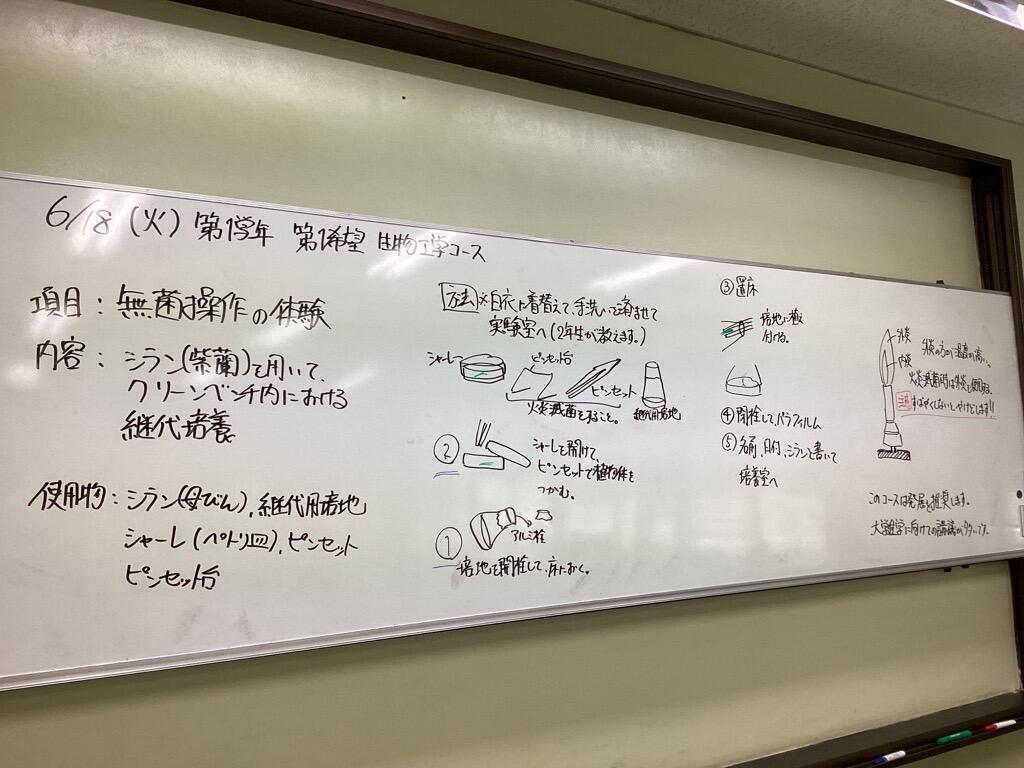 6/18 (火) 第1学年 第1希望 生物工学コース
項目：無菌操作の体験
内容：シラン(紫蘭)を用いて、
クリーンベンチ内における
継代培養
使用物：シラン(母びん)、継代用培地
シャーレ(ペトリ皿)、ピンセット
ピンセット台
方法 ※白衣に着替えて、手洗いを済ませて
実験室へ(2年生が教えます。)
シャーレ
ピンセット台
ピンセット
継代用培地
火炎滅菌をすること。
②
シャーレを開けて、
ピンセットで植物体を
つかむ。
①
アルミ栓
培地を開栓して、床におく。
③置床
培地に植え
付ける。
④閉栓して、パラフィルム
⑤名前、日付、シランと書いて
培養室へ
外炎
内炎
外炎の方が温度が高い。
火炎滅菌時は外炎を使用する。
注意 すばやくしないとやけどします!!
このコースは発展を推奨します。
大学進学に向けての講議が